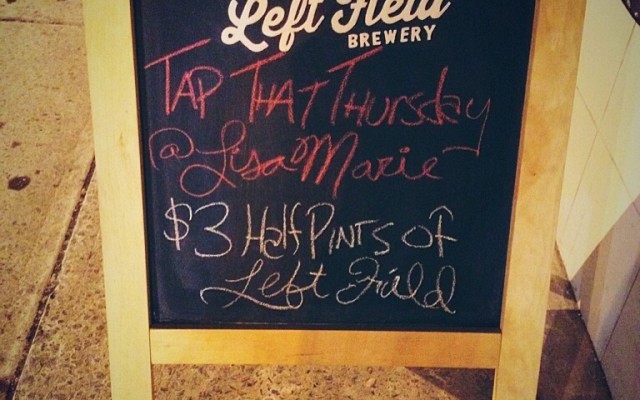 Left Field
BREWERY
TAP THAT Thursday
@LisaMarie
$3 Half PINTS OF
Left Field